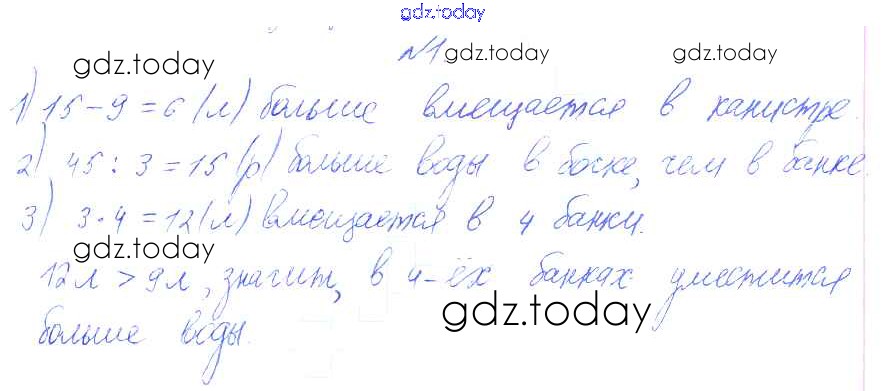 gdz.today
№1.
gdz.today gdz.today gdz.today
1) 15 - 9 = 6 (л) больше вмещается в канистре.
2) 45 : 3 = 15 (р) больше воды в бочке, чем в банке.
3) 3 · 4 = 12 (л) вмещается в 4 банки.
gdz.today gdz.today
12л > 9л, значит, в 4-ёх банках уместится
больше воды.
gdz.today